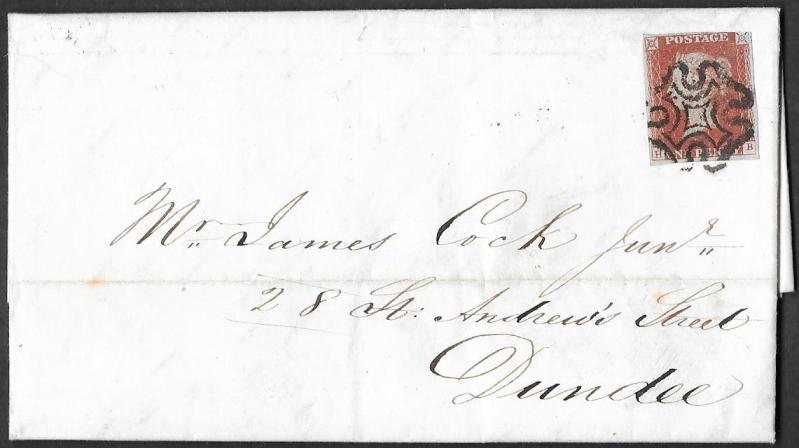 POSTAGE
H ONE PENNY B
Mr. James Cock Junr.
28 St: Andrew's Street
Dundee